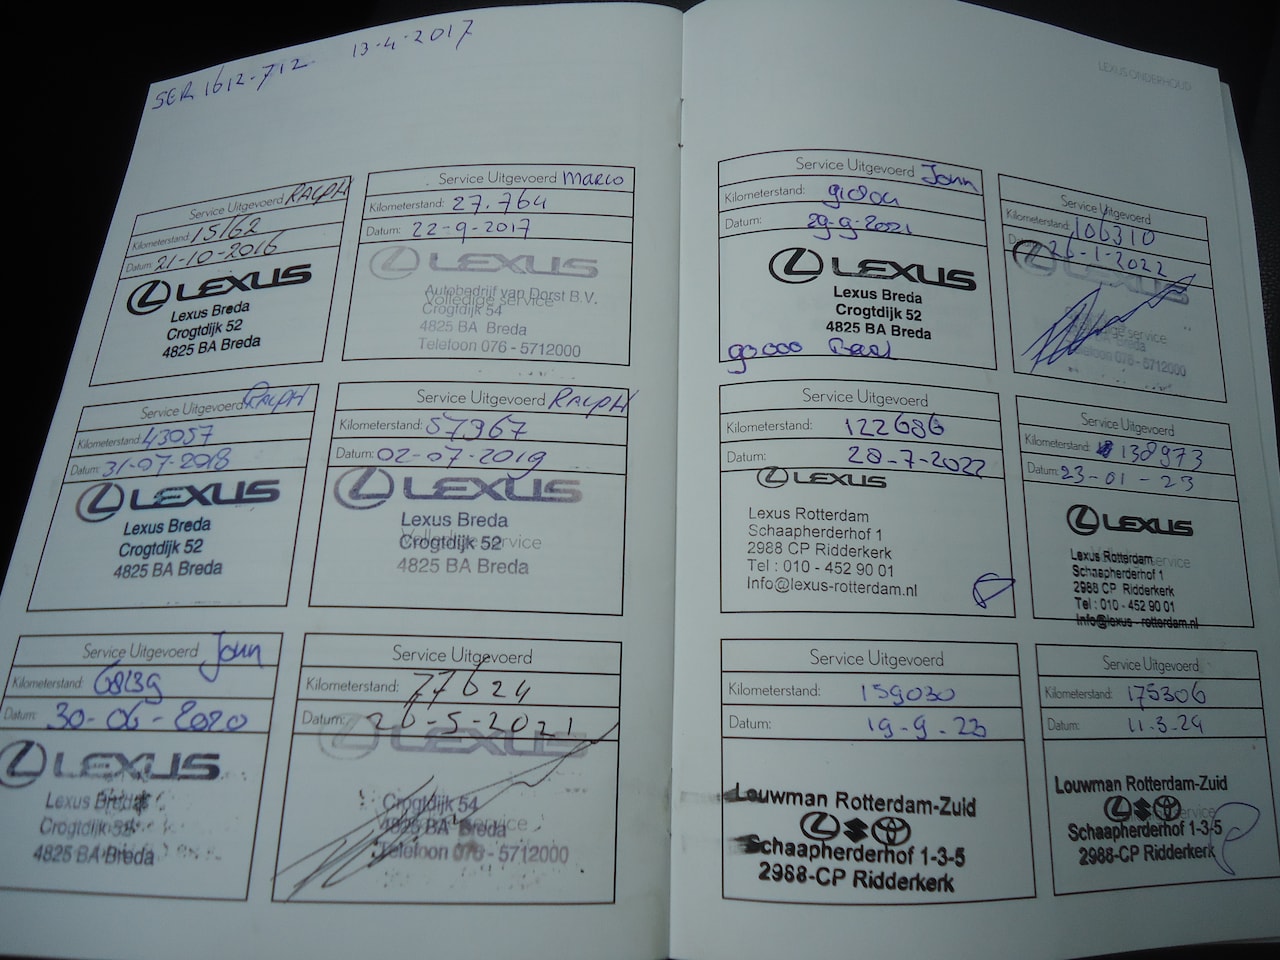 SER 1612-712 13-4-2017
Service Uitgevoerd RALPH
Kilometerstand: 15162
Datum: 21-10-2016
LEXUS
Lexus Breda
Crogtdijk 52
4825 BA Breda
Service Uitgevoerd Marco
Kilometerstand: 27.764
Datum: 22-9-2017
LEXUS
Autobedrijf van Dorst B.V.
Volledige service
Crogtdijk 54
4825 BA Breda
Telefoon 076 - 5712000
Service Uitgevoerd RALPH
Kilometerstand: 43057
Datum: 31-07-2018
LEXUS
Lexus Breda
Crogtdijk 52
4825 BA Breda
Service Uitgevoerd RALPH
Kilometerstand: 57967
Datum: 02-07-2019
LEXUS
Lexus Breda
Volledige service
Crogtdijk 52
4825 BA Breda
Service Uitgevoerd John
Kilometerstand: 68139
Datum: 30-06-2020
LEXUS
Lexus Breda
Crogtdijk 52
4825 BA Breda
Service Uitgevoerd
Kilometerstand: 77624
Datum: 26-5-2021
LEXUS
Crogtdijk 54
4825 BA Breda
service
Telefoon 076 - 5712000
LEXUS ONDERHOUD
Service Uitgevoerd John
Kilometerstand:
Datum: 29-9-2021
LEXUS
Lexus Breda
Crogtdijk 52
4825 BA Breda
90000
Service Uitgevoerd
Kilometerstand: 106310
26-1-2022
LEXUS
service
Breda
Telefoon 076 - 5712000
Service Uitgevoerd
Kilometerstand: 122686
Datum: 28-7-2022
LEXUS
Lexus Rotterdam
Schaapherderhof 1
2988 CP Ridderkerk
Tel : 010 - 452 90 01
Info@lexus-rotterdam.nl
Service Uitgevoerd
Kilometerstand: 138973
Datum: 23-01-23
LEXUS
Lexus Rotterdam
service
Schaapherderhof 1
2988 CP Ridderkerk
Tel : 010 - 452 90 01
Info@lexus - rotterdam.nl
Service Uitgevoerd
Kilometerstand: 159030
Datum: 19-9-23
Louwman Rotterdam-Zuid
Schaapherderhof 1-3-5
2988-CP Ridderkerk
Service Uitgevoerd
Kilometerstand: 175306
Datum: 11-3-24
Louwman Rotterdam-Zuid
service
Schaapherderhof 1-3-5
2988-CP Ridderkerk